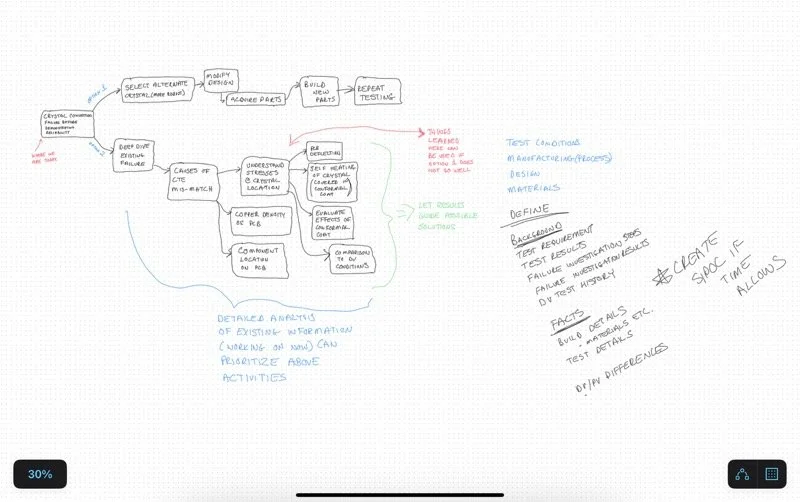 SELECT ALTERNATE
CRYSTAL (MORE ROBUST)
MODIFY
DESIGN
ACQUIRE PARTS
BUILD
NEW
PARTS
REPEAT
TESTING
OPTION 1
CRYSTAL CONNECTION
FAILURE BEFORE
DEMONSTRATING
RELIABILITY
WHERE WE
ARE TODAY
OPTION 2
DEEP DIVE
EXISTING
FAILURE
CAUSES OF
CTE
MIS-MATCH
UNDERSTAND
STRESSES
@ CRYSTAL
LOCATION
COPPER DENSITY
OF PCB
COMPONENT
LOCATION
ON PCB
PCB
DEFLECTION
SELF HEATING
OF CRYSTAL
(COVERED IN)
CONFORMAL
COAT
EVALUATE
EFFECTS OF
CONFORMAL
COAT
COMPARISON
TO DV
CONDITIONS
THINGS
LEARNED
HERE CAN
BE USED IF
OPTION 1 DOES
NOT GO WELL
LET RESULTS
GUIDE POSSIBLE
SOLUTIONS
DETAILED ANALYSIS
OF EXISTING INFORMATION
(WORKING ON NOW) CAN
PRIORITIZE ABOVE
ACTIVITIES
TEST CONDITIONS
MANUFACTURING (PROCESS)
DESIGN
MATERIALS
DEFINE
BACKGROUND
TEST REQUIREMENT
TEST RESULTS
FAILURE INVESTIGATION STEPS
FAILURE INVESTIGATION RESULTS
DV TEST HISTORY
FACTS
BUILD DETAILS
- MATERIALS ETC.
TEST DETAILS
DV/PV DIFFERENCES
CREATE
SIPOC IF
TIME
ALLOWS
30%